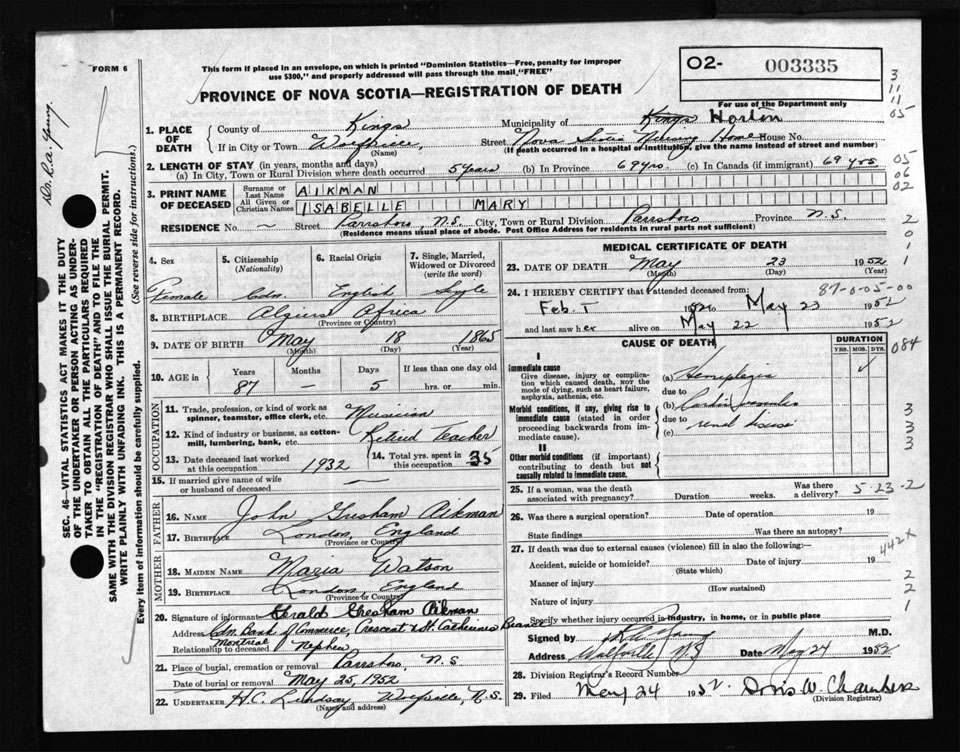 FORM 6
This form if placed in an envelope, on which is printed "Dominion Statistics—Free, penalty for improper
use $300," and properly addressed will pass through the mail "FREE"
O2- 003335
For use of the Department only
PROVINCE OF NOVA SCOTIA—REGISTRATION OF DEATH
3
11
11
05
1. PLACE OF DEATH County of Kings Municipality of Kings Horton
If in City or Town Wolfville, (Name) Street Nova Scotia Nursing Home House No.
(If death occurred in a hospital of institution, give the name instead of street and number)
2. LENGTH OF STAY (in years, months and days)
(a) In City, Town or Rural Division where death occurred 5 years (b) In Province 69 yrs. (c) In Canada (if immigrant) 69 yrs
05
06
02
3. PRINT NAME OF DECEASED Surname or Last Name AIKMAN
All Given or Christian Names ISABELLE MARY
RESIDENCE No. ~ Street Parrsboro, N.S. City, Town or Rural Division Parrsboro Province N.S.
(Residence means usual place of abode. Post Office Address for residents in rural parts not sufficient)
2
0
1
1
4. Sex Female
5. Citizenship (Nationality) Cdn.
6. Racial Origin English
7. Single, Married, Widowed or Divorced (write the word) Single
8. BIRTHPLACE Algiers Africa
(Province or Country)
9. DATE OF BIRTH May 18 1865
(Month) (Day) (Year)
10. AGE in Years 87 Months — Days 5 If less than one day old hrs. or min.
OCCUPATION
11. Trade, profession, or kind of work as spinner, teamster, office clerk, etc. Musician
12. Kind of industry or business, as cotton-mill, lumbering, bank, etc. Retired Teacher
13. Date deceased last worked at this occupation 1932 14. Total yrs. spent in this occupation 35
15. If married give name of wife or husband of deceased —
FATHER
16. NAME John Gresham Aikman
17. BIRTHPLACE London, England
(Province or Country)
MOTHER
18. MAIDEN NAME Maria Watson
19. BIRTHPLACE London England
(Province or Country)
20. Signature of informant Gerald Gresham Aikman
Address Cdn. Bank of Commerce, Crescent & St. Catherines Branch
Montreal
Relationship to deceased Nephew
21. Place of burial, cremation or removal Parrsboro, N.S
Date of burial or removal May 25, 1952
22. UNDERTAKER H.C. Lindsay, Wolfville, N.S.
(Name and address)
MEDICAL CERTIFICATE OF DEATH
23. DATE OF DEATH May 23 1952
(Month) (Day) (Year)
24. I HEREBY CERTIFY that I attended deceased from: 87-0-05-00
Feb. 1952 to May 23 1952
and last saw her alive on May 22 1952
CAUSE OF DEATH DURATION
YRS. MOS. DYS.
084
I
Immediate cause
Give disease, injury or complication which caused death, NOT the mode of dying, such as heart failure, asphyxia, asthenia, etc.
(a) Hemiplegia
due to
Morbid conditions, if any, giving rise to immediate cause (stated in order proceeding backwards from immediate cause).
(b) Cardio
due to renal disease
(c)
3
3
3
II
Other morbid conditions (if important) contributing to death but not causally related to immediate cause.
25. If a woman, was the death associated with pregnancy? Duration weeks. Was there a delivery? 5-23-2
26. Was there a surgical operation? Date of operation 19
State findings Was there an autopsy?
27. If death was due to external causes (violence) fill in also the following:— 442x
Accident, suicide or homicide? (State which) Date of injury 19
Manner of injury (How sustained)
Nature of injury
Specify whether injury occurred in industry, in home, or in public place
2
2
1
Signed by R.A. Young M.D.
Address Wolfville N.S. Date May 24 1952
28. Division Registrar's Record Number
29. Filed May 24 1952. Doris W. Chambers
(Division Registrar)
Dr. R.A. Young.
SEC. 46—VITAL STATISTICS ACT MAKES IT THE DUTY
OF THE UNDERTAKER OR PERSON ACTING AS UNDER-
TAKER TO OBTAIN ALL THE PARTICULARS REQUIRED
IN THE "REGISTRATION OF DEATH" AND TO FILE THE
SAME WITH THE DIVISION REGISTRAR WHO SHALL ISSUE THE BURIAL PERMIT.
WRITE PLAINLY WITH UNFADING INK. THIS IS A PERMANENT RECORD.
Every item of information should be carefully supplied. (See reverse side for instructions.)